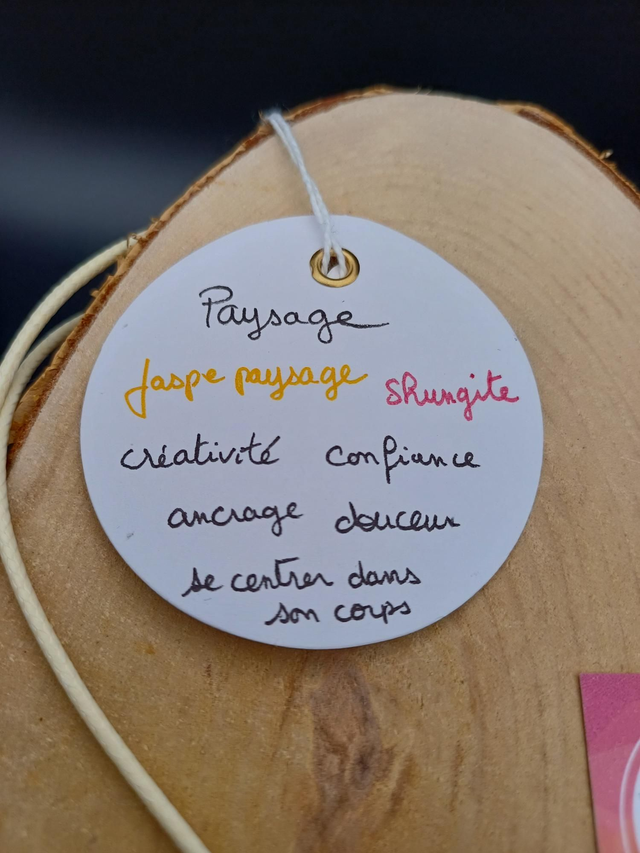 Paysage
Jaspe paysage Shungite
créativité confiance
ancrage douceur
se centrer dans
son corps